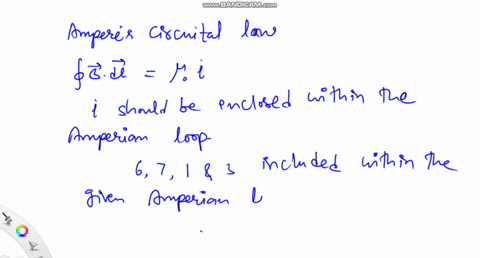 WWW.BANDICAM.COM
Ampere's circuital law
∮B⃗.dl⃗ = μ₀ i
i should be enclosed within the
Amperian loop
6, 7, 1 & 3 included within the
given Amperian l